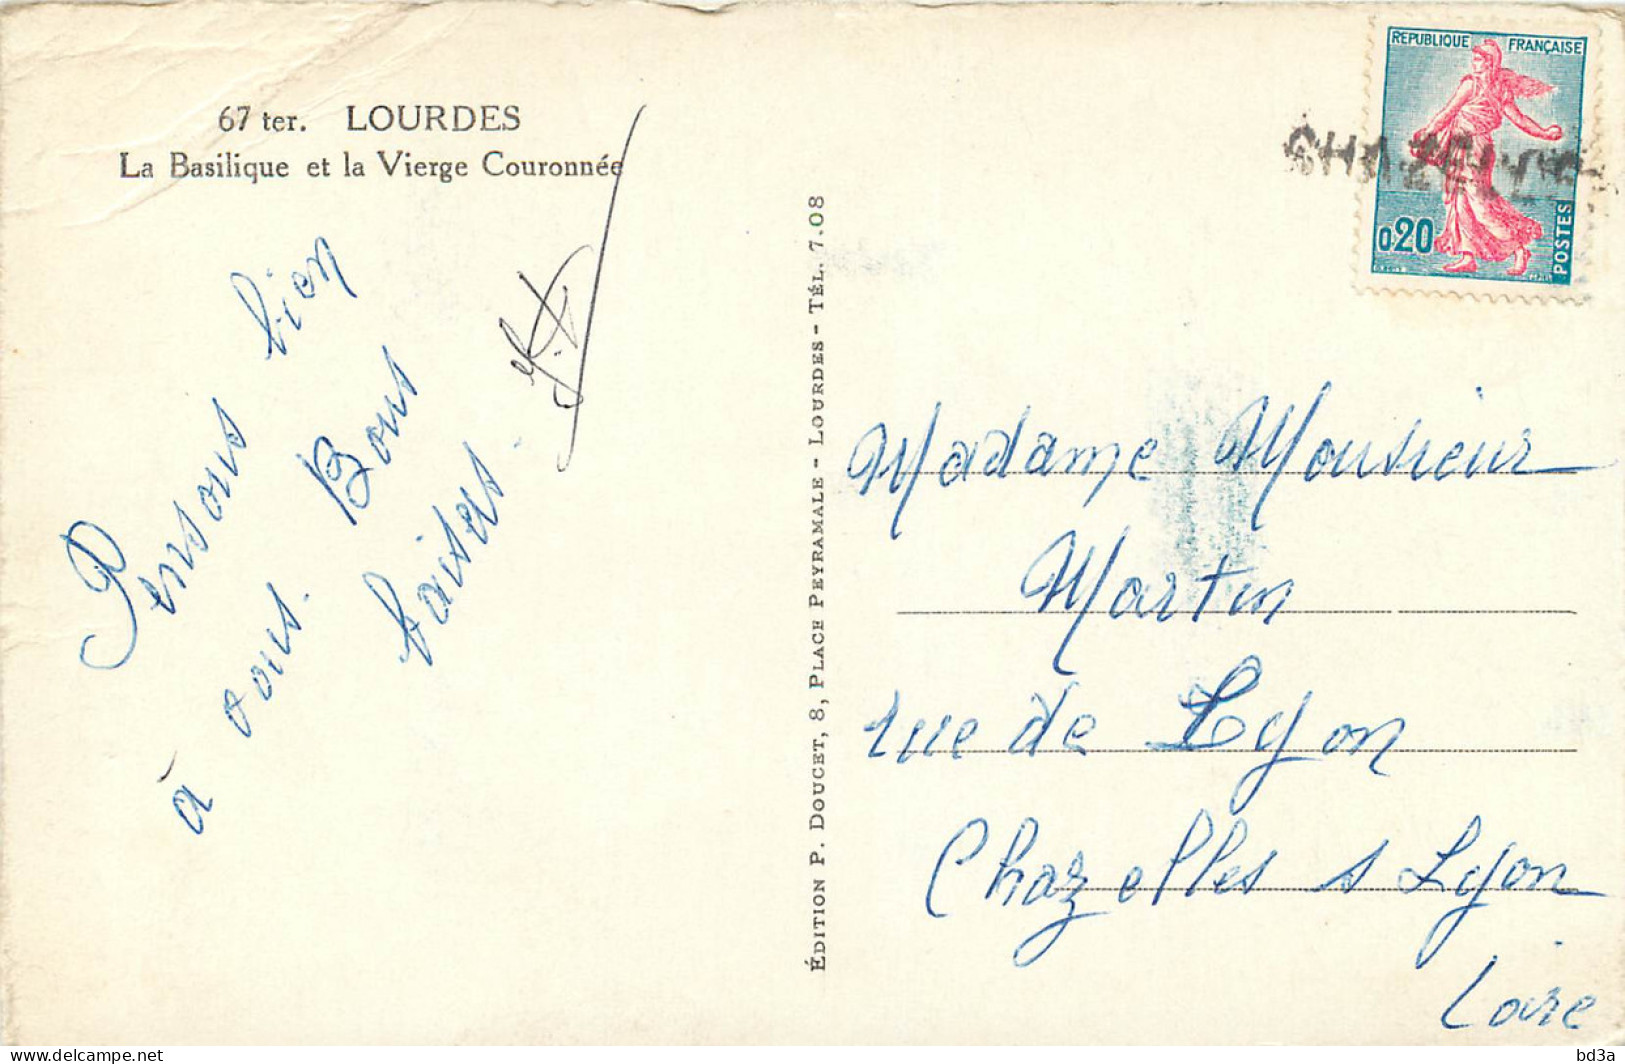 67 ter. LOURDES
La Basilique et la Vierge Couronnée
Pensons bien
à vous. Bons
baisers.
ÉDITION P. DOUCET, 8, PLACE PEYRAMALE - LOURDES - TÉL. 7.08
REPUBLIQUE FRANÇAISE
0,20
POSTES
Madame Monsieur
Martin
rue de Lyon
Chazelles s Lyon
Loire
bd3a